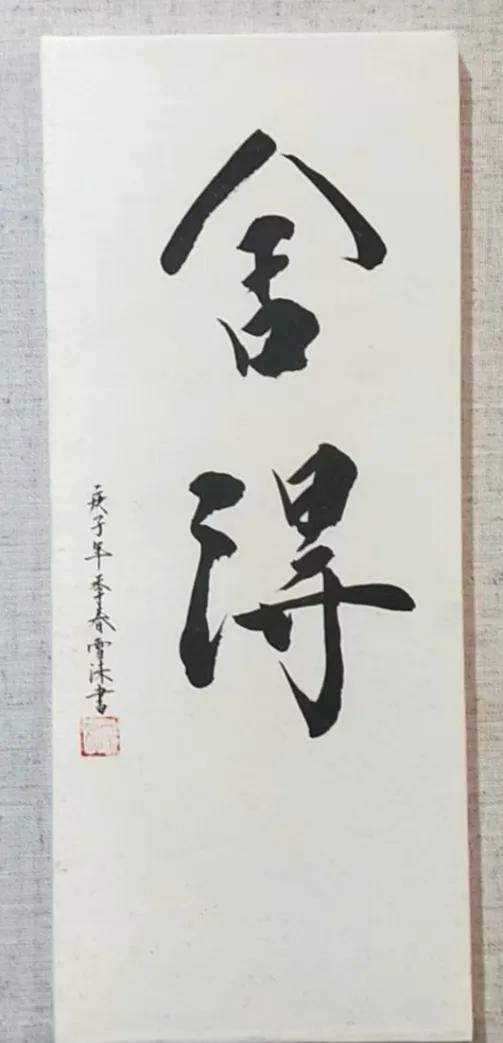 舍得
庚子年季春雪沐書